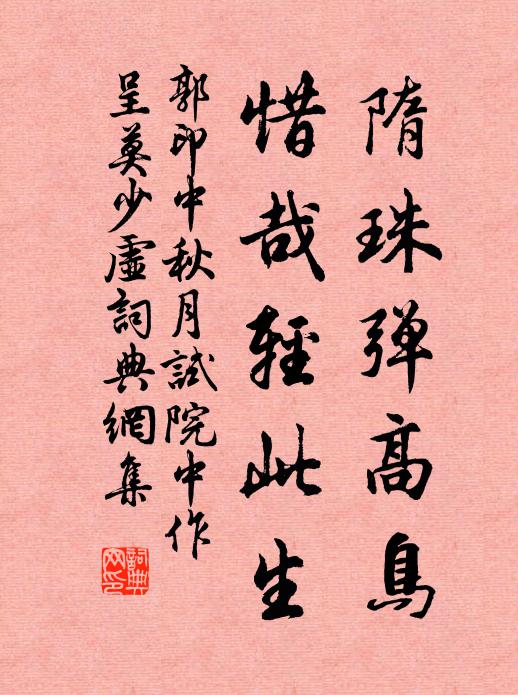 隋珠弹高鳥
惜哉輕此生
郭印中秋月試院中作
呈莫少虛詞典網集
詞典网印